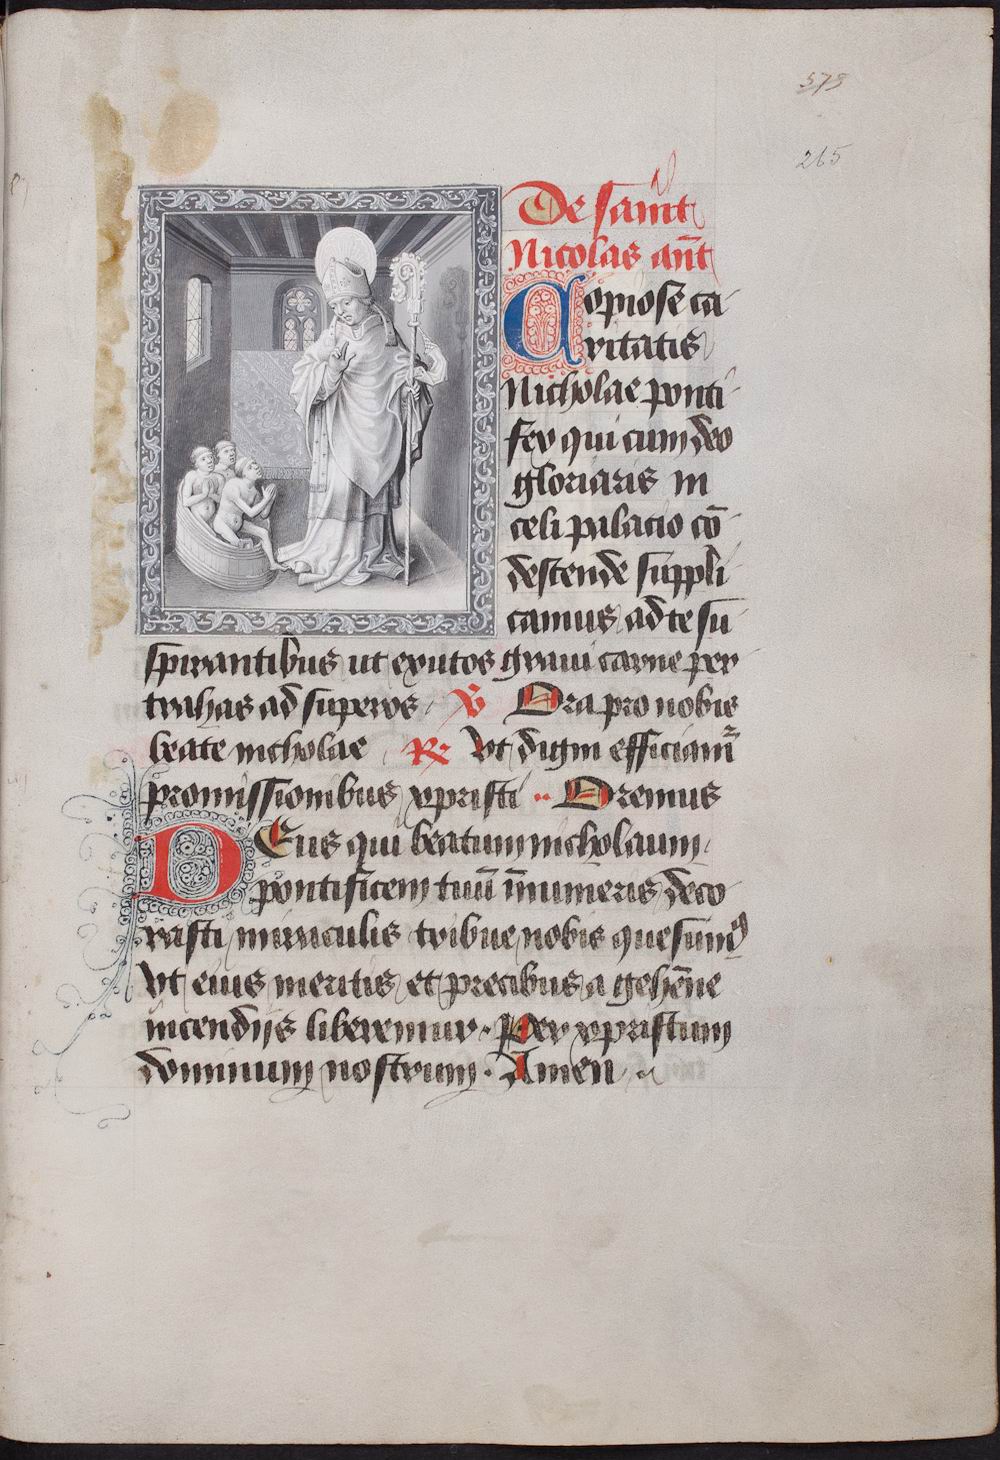 579
265
De saint
Nicolas añt
Copiose ca
ritatis
Nicholae ponti
fex qui cum deo
gloriaris in
celi palacio cō
destende suppli
camus ad te su
spirantibus ut exutos graui carne per
trahas ad superos. ℣ Ora pro nobis
beate nicholae ℟ Vt digni efficiam̃
promissionibus xpristi Oremus
Deus qui beatum nicholaum.
pontificem tuū īnumeris deco
rasti miraculis tribue nobis quesumꝰ
Vt eius meritis et precibus a gehēne
incendijs liberemur. Per xpristum
dominum nostrum. Amen.